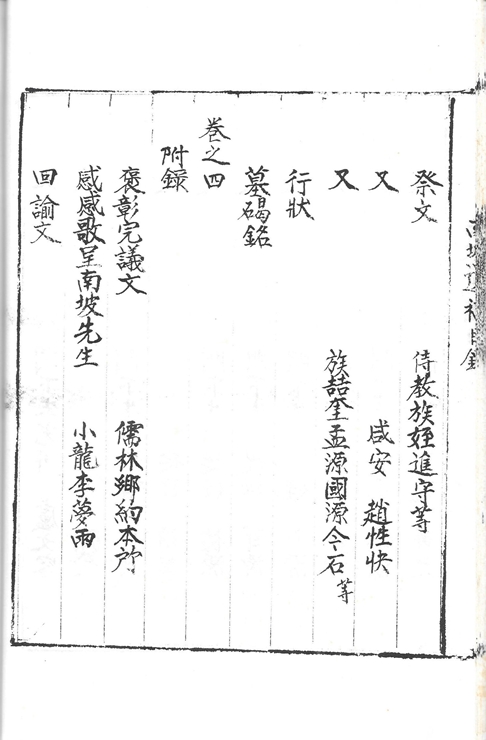 祭文 侍教族姪進守等
又 咸安 趙性快
又 族喆奎孟源國源今石等
行狀
墓碣銘
卷之四
附錄
褒彰完議文 儒林鄉約本所
感感歌呈南坡先生 小龍李夢雨
回諭文